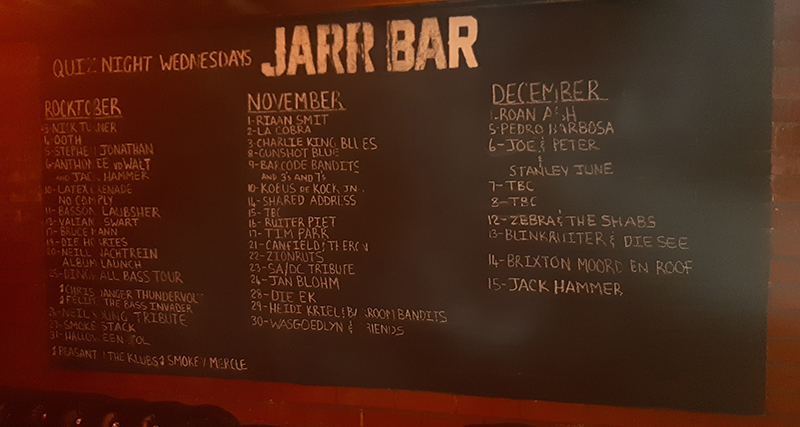 QUIZ NIGHT WEDNESDAYS JARR BAR
ROCKTOBER
NICK TURNER
OOTH
5-STEPHEN JONATHAN
6-ANTHONIE VD WALT
AND JACK HAMMER
10-LATEX GRENADE
NO COMPLY
11-BASSON LAUBSHER
13-VALIANT SWART
17-BRUCE MANN
19-DIE HOERIES
20-NEILL NACHTREIN
ALBUM LAUNCH
BASS TOUR
& CHRIS THUNDERVOLT
& THE BASS INVADER
NEIL YOUNG TRIBUTE
27-SMOKE STACK
31-HALLOWEEN
& PEASANT & THE KLUBS & SMOKEY MERCLE
NOVEMBER
1-RIAAN SMIT
2-LA COBRA
3-CHARLIE KING BLUES
8-GUNSHOT BLUE
9-BARCODE BANDITS
AND 3'S AND 7'S
10-KOBUS DE KOCK JNR.
14-SHARED ADDRESS
15-TBC
16-RUITER PIET
17-TIM PARK
21-CANFIELD & THERON
22-ZIONRUIS
23-SA/DC TRIBUTE
24-JAN BLOHM
28-DIE EK
29-HEIDI KRIEL & BARROOM BANDITS
30-WASGOEDLYN & FRIENDS
DECEMBER
1-ROAN ASH
5-PEDRO BARBOSA
6-JOE & PETER
&
STANLEY JUNE
7-TBC
8-TBC
12-ZEBRA & THE SHABS
13-BLINKRUITER & DIE SEE
14-BRIXTON MOORD EN ROOF
15-JACK HAMMER